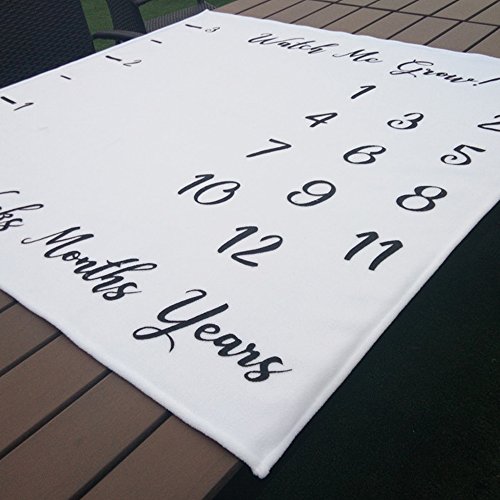 Watch Me Grow!
1 2
4 3
7 6 5
10 9 8
12 11
-3
-2
-1
Months Years